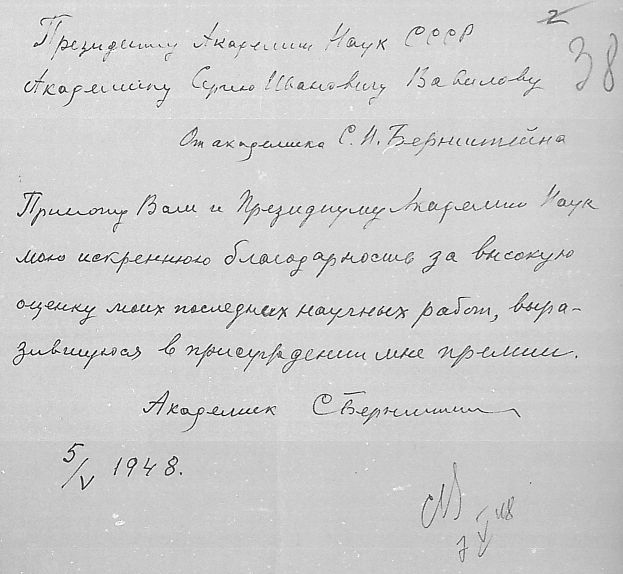 2
38
Президенту Академии Наук СССР
Академику Сергею Ивановичу Вавилову
От академика С. Н. Бернштейна
Приношу Вам и Президиуму Академии Наук
мою искреннюю благодарность за высокую
оценку моих последних научных работ, выра-
зившуюся в присуждении мне премии.
Академик С Бернштейн
5/V 1948.
7 V 48